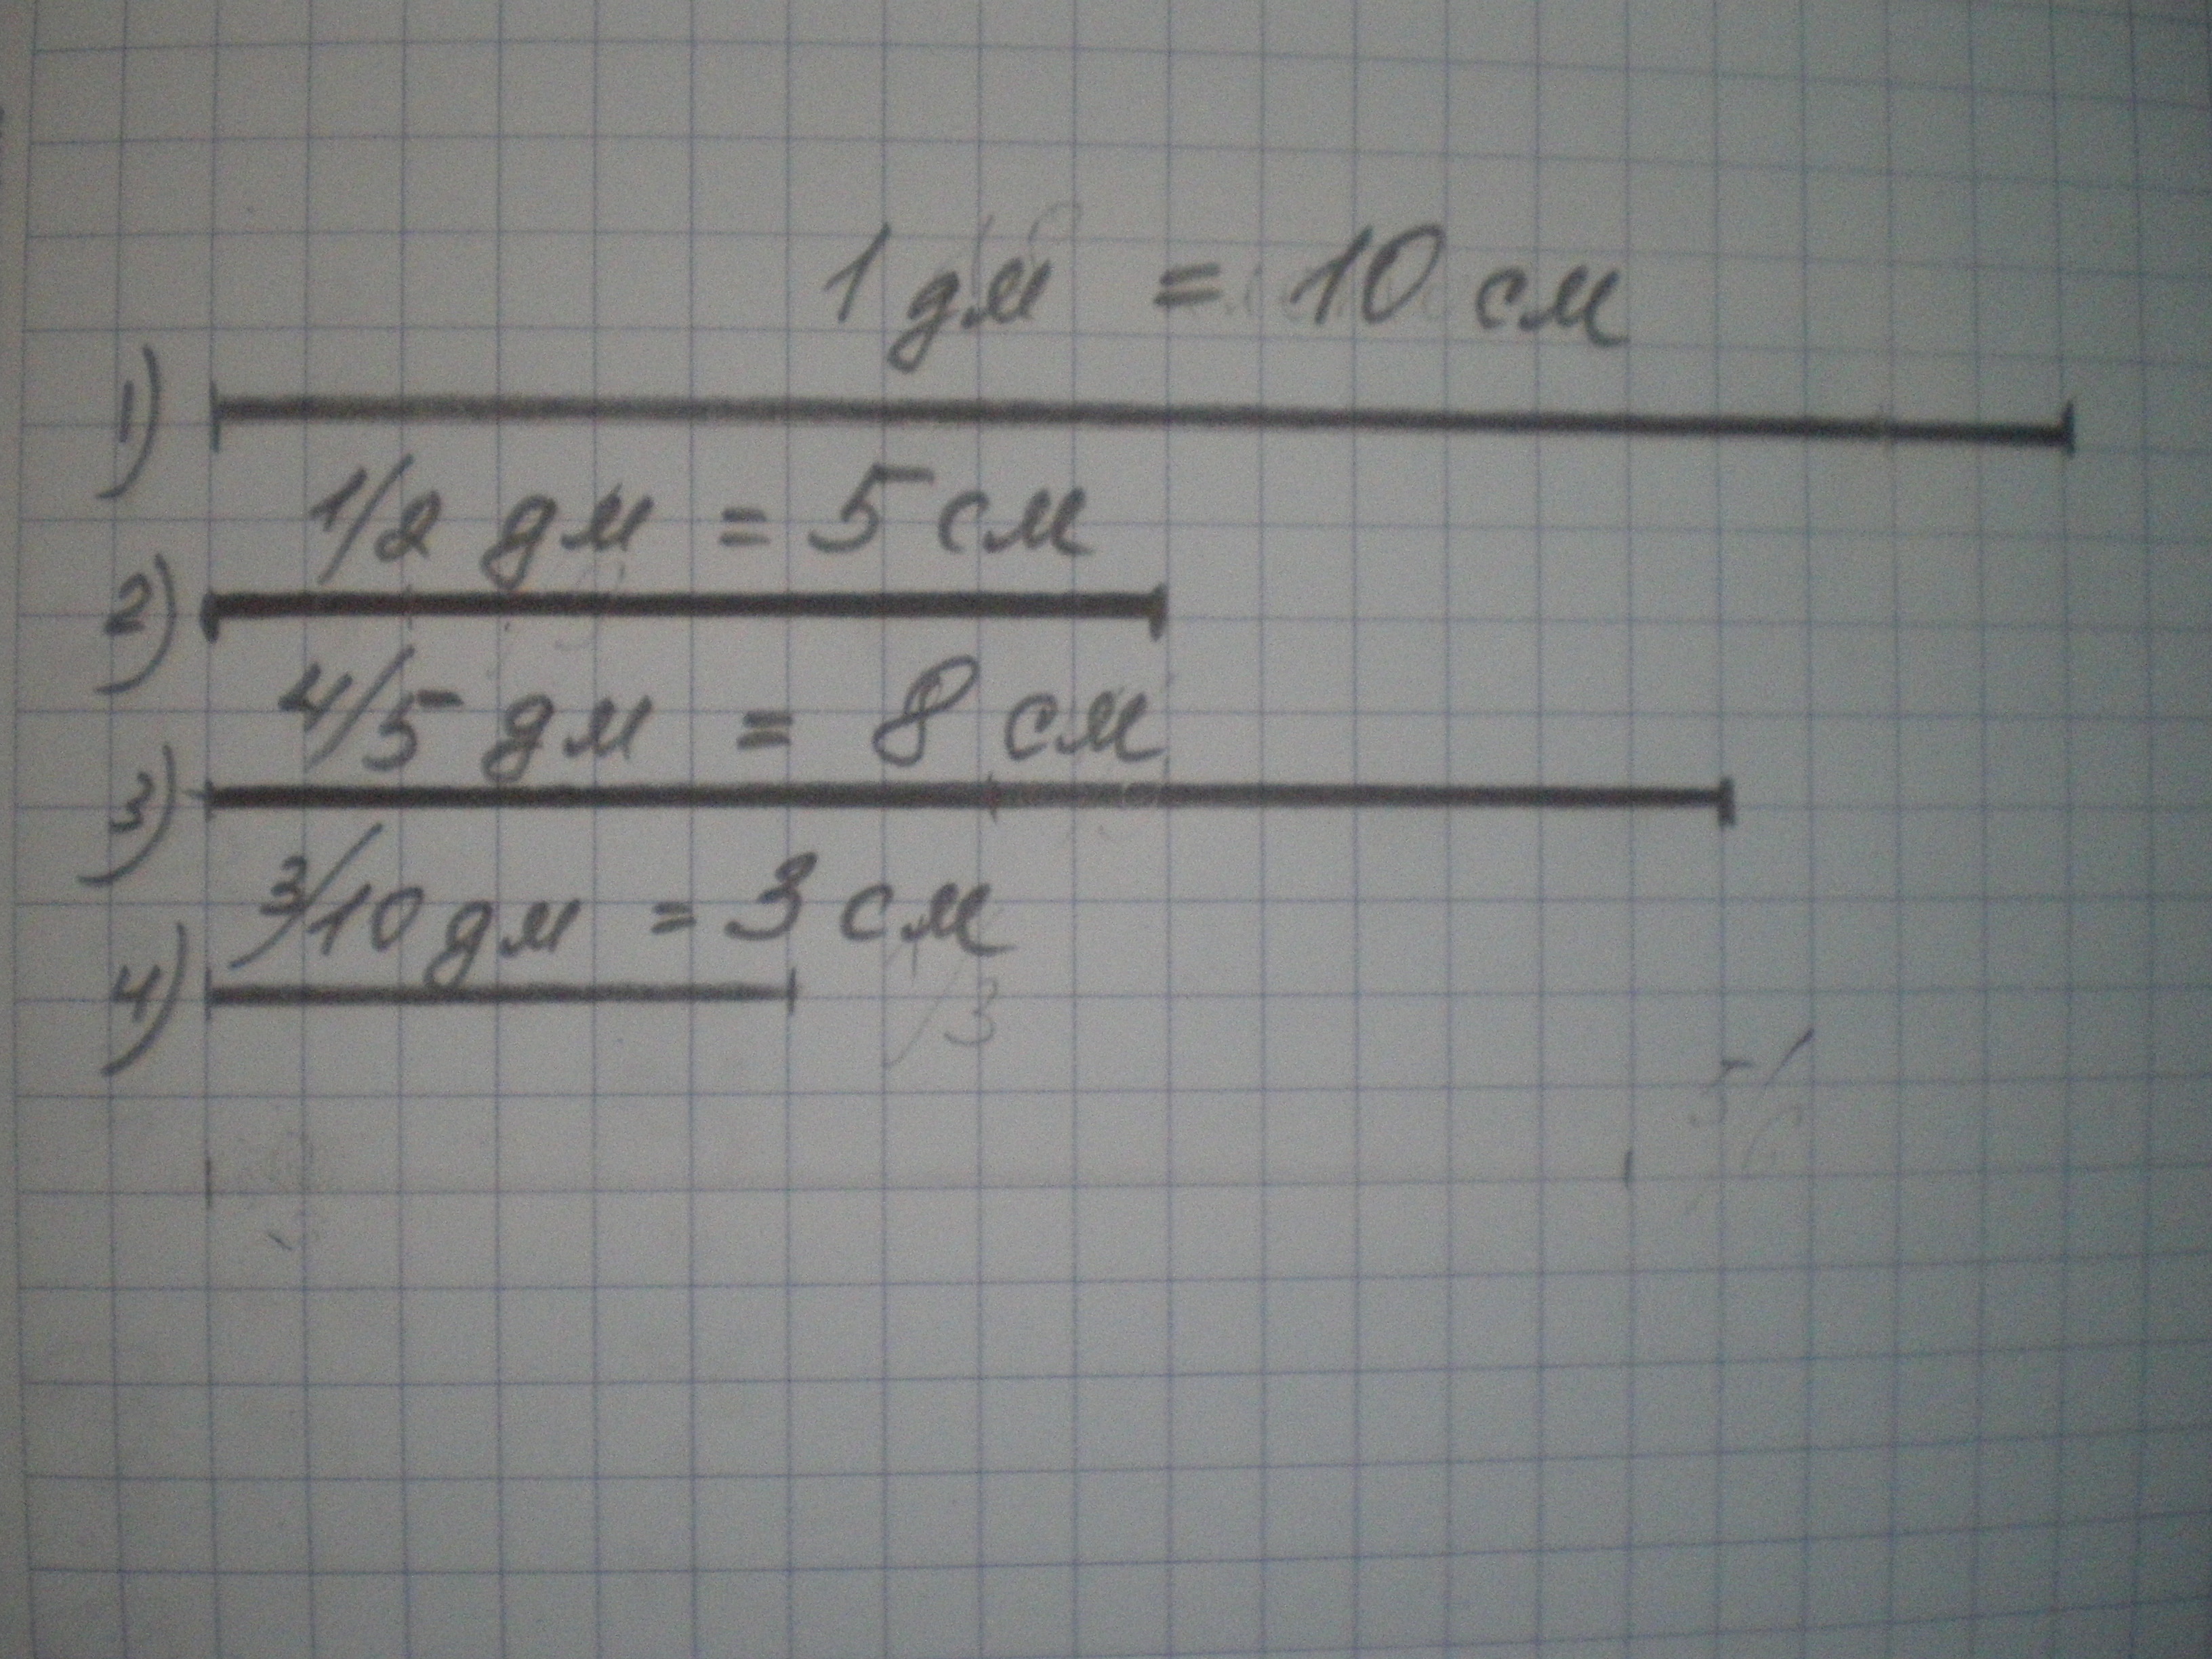 1 дм = 10 см
1)
1/2 дм = 5 см
2)
4/5 дм = 8 см
3)
3/10 дм = 3 см
4)